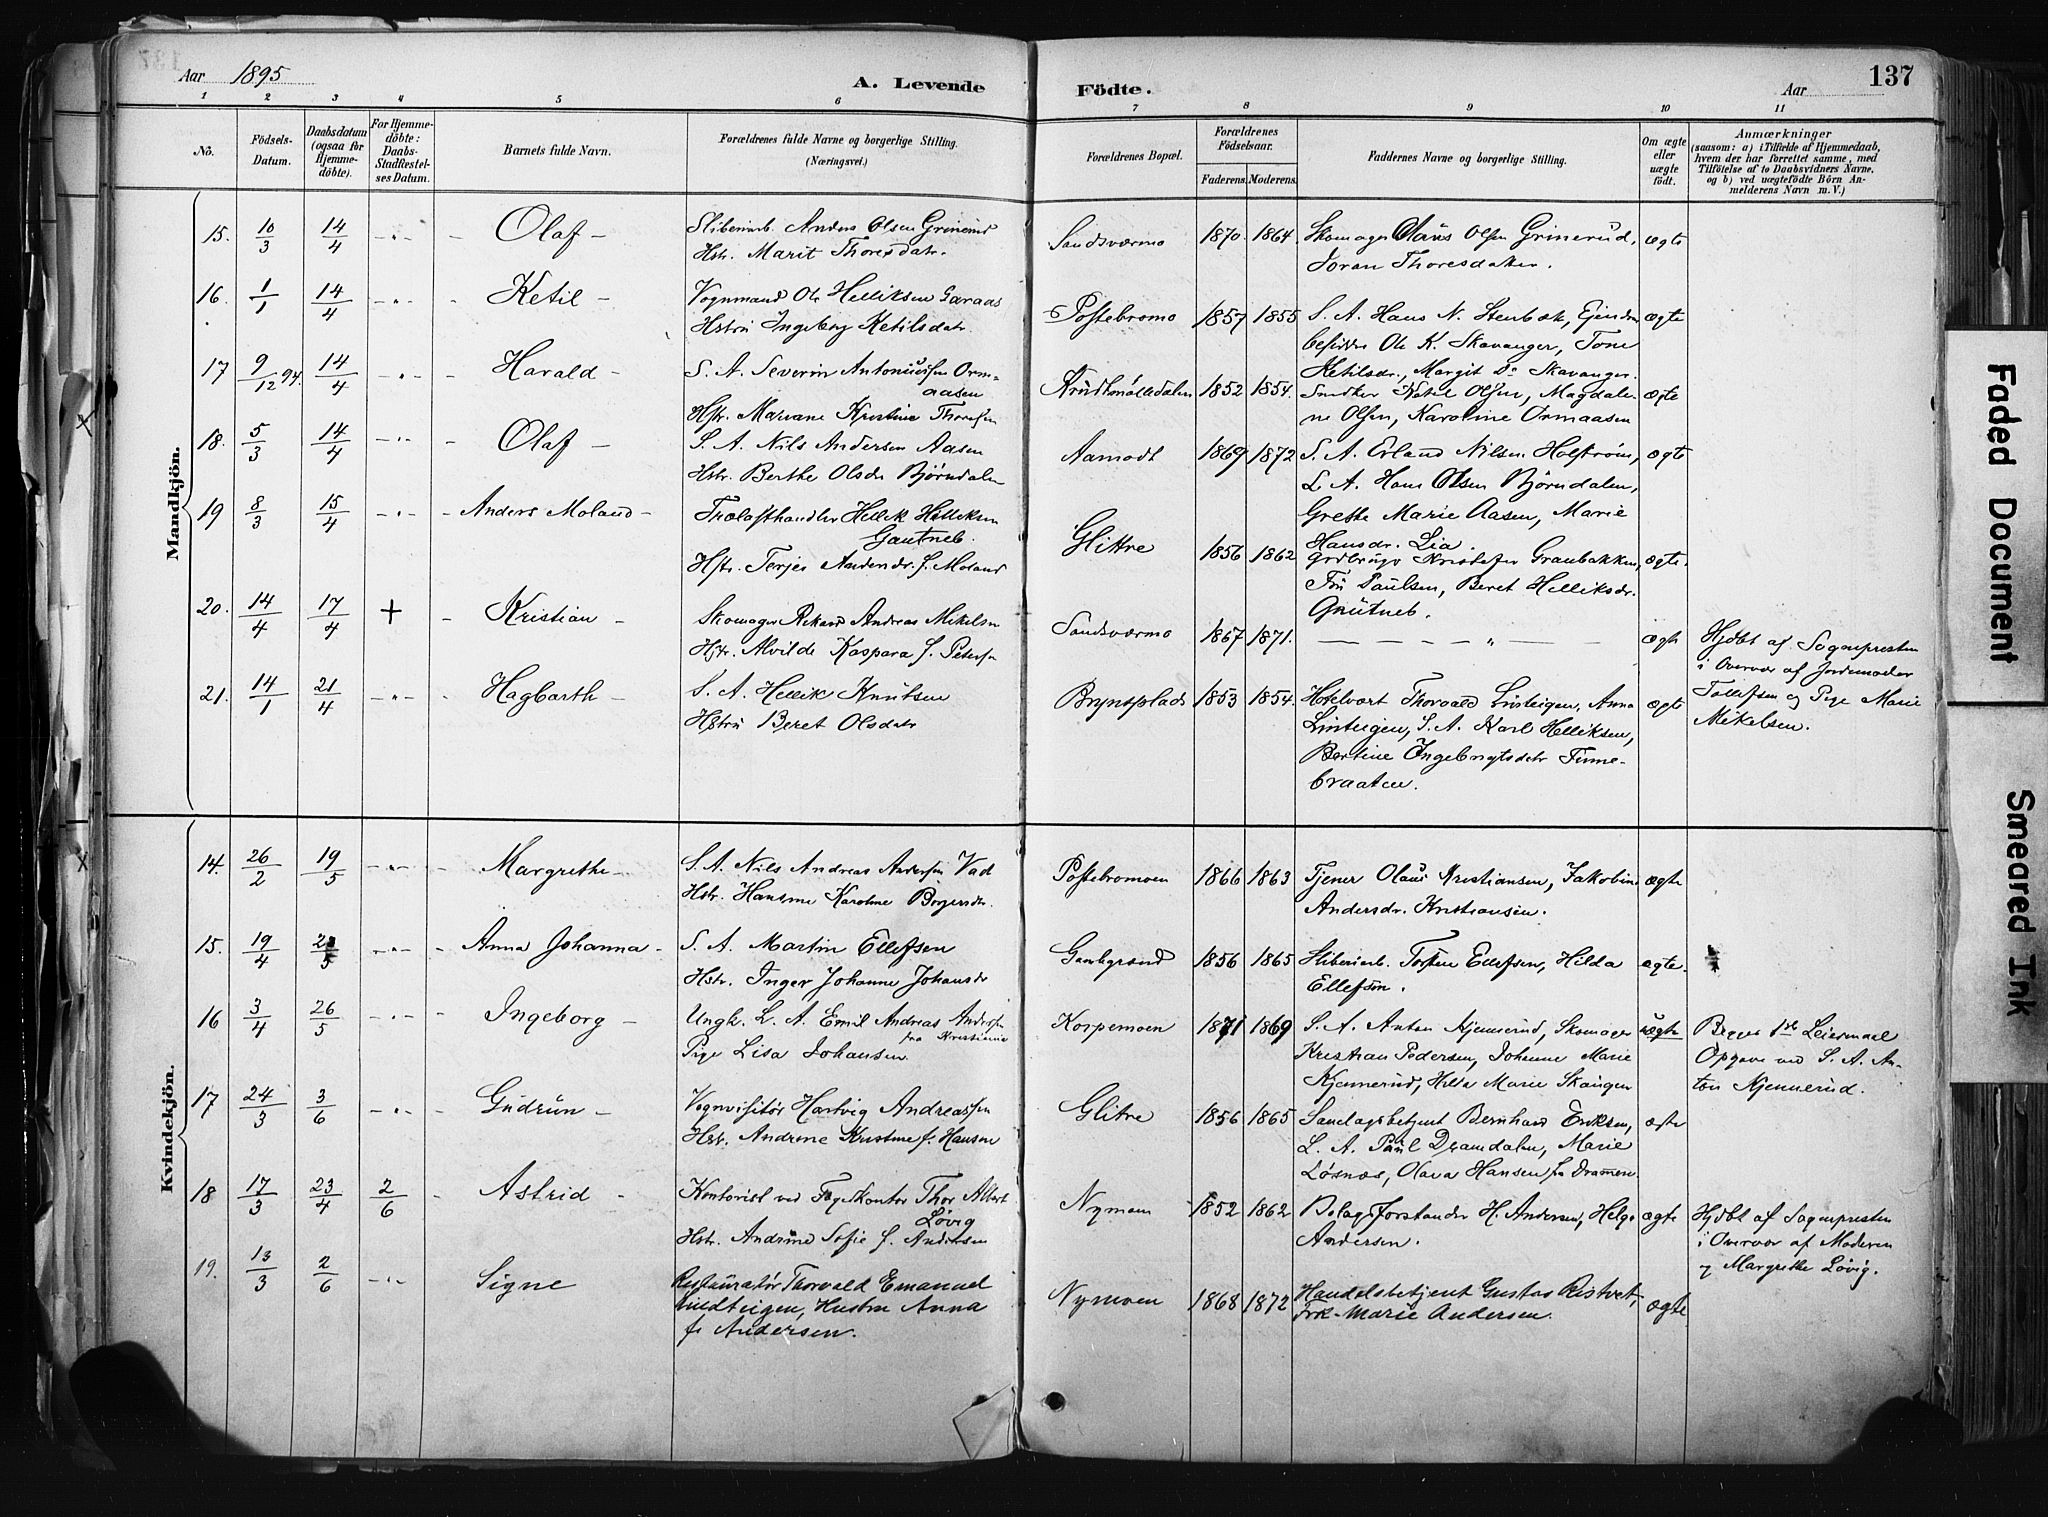 Aar 1895
A. Levende
Födte.
Aar
137
1 2 3 4 5 6 7 8 9 10 11
No.
Födsels-
Datum.
Daabsdatum
(ogsaa for
Hjemme-
döbte).
For Hjemme-
döbte:
Daabs-
Stadfæstel-
ses Datum.
Barnets fulde Navn.
Forældrenes fulde Navne og borgerlige Stilling.
(Næringsvei.)
Forældrenes Bopæl.
Forældrenes
Födselsaar.
Faderens. Moderens.
Faddernes Navne og borgerlige Stilling.
Om ægte
eller
uægte
födt.
Anmærkninger
(saasom: a) i Tilfælde af Hjemmedaab,
hvem der har forrettet samme, med
Tilföielse af to Daabsvidners Navne,
og b) ved uægtefödte Börn An-
melderens Navn m. V.)
Mandkjön.
15. 10/3 14/4 Olaf
Sliberiarb. Anders Olsen Grinerud
Hstr. Marit Thoresdatr.
Sandsværmo 1870. 1864.
Skomager Olaus Olsen Grinerud,
Joran Thoresdatter.
ægte
16. 1/1 14/4 Ketil
Vognmand Ole Helliksen Garaas
Hstru Ingeborg Ketilsdatr
Postebromo 1857 1855
S. A. Hans N. Stenbæk, Eiendm
besidder Ole K. Skavanger, Tone
Ketilsdr., Margit Do Skavanger.
ægte
17 9/12 94. 14/4 Harald
S. A. Severin Antoniussen Orm-
aasen
Hstr. Mariane Kristine Thoresen
Krudtmølledalen 1852 1854.
Snedker Nokel Olsen, Magdale-
ne Olsen, Karoline Ormaasen
ægte
18. 5/3 14/4 Olaf
S. A. Nils Andersen Aasen
Hstr. Berthe Olsdr Bjørndalen
Aamodt 1869 1872
S. A. Erland Nilsen Holstrøm,
L. A. Hans Olsen Bjørndalen,
Grethe Marie Aasen, Marie
Hansdr. Lia.
ægte
19 8/3 15/4 Anders Moland
Trælasthandler Hellek Helliksen
Gautneb.
Hstr. Terjer Andersdr. f. Moland
Glittre 1856 1862
Grdbruger Kristofer Granbakken,
Paulsen, Beret Helliksdr.
Gautneb.
ægte.
20. 14/4 17/4 + Kristian
Skomager Rikard Andreas Mikelsen
Hstr. Alvilde Kaspara f. Petersen
Sandsværmo 1867 1871.
ægte
Hjdbt af Sognepresten
i Overvær af Jordemoder
Tollefsen og Pige Marie
Mikelsen.
21. 14/1 21/4 Hagbarth
S. A. Hellik Knutsen
Hstru Beret Olsdatr
Bryntsplads 1853 1854.
Hotelvært Thorvald Linteigen, Anna
Linteigen, S. A. Karl Helliksen,
Bertine Ingebrigtsdatr Finne-
braaten.
ægte
Kvindekjön.
14. 26/2 19/5 Margrethe
S. A. Nils Andreas Andersen Vad
Hstr. Hansine Karoline Borgersdr.
Postebromoen 1866 1863
Tjener Olaus Kristiansen, Jakobine
Andersdr. Kristiansen.
ægte
15. 19/4 Anna Johanna
S. A. Martin Ellefsen
Hstr. Inger Johanne Johansdr
Gamlegrend 1856 1865
Sliberiarb. Tosten Ellefsen, Hilda
Ellefsen.
ægte.
16 3/4 26/5 Ingeborg
Ungk. L. A. Emil Andreas Andersen
fra Kristiania
Pige Lisa Johansen.
Korpemoen 1871 1869
S. A. Anton Kjennerud, Skomager
Kristian Pedersen, Johanne Marie
Kjennerud, Hilda Marie Skaugen
uægte
Begges 1ste Leiermaal
Opgave ved S. A. An-
ton Kjennerud.
17 24/3 3/6 Gudrun
Vognvisitør Hartvig Andreassen
Hstr. Andrine Kristine f. Hansen
Glitre 1856 1865
Samlagsbetjent Bernhard Eriksen,
L. A. Paul Dramdalen, Marie
Løsnæs, Olava Hansen fra Drammen
ægte
18 17/3 23/4 2/6 Astrid
Kontorist ved Fogedkontor Thor Albert
Løvig
Hstr. Andrine Sofie f. Andersen
Nymoen 1852 1862
Bolagsforstander H. Andersen, Helga
Andersen.
ægte
Hjdbt af Sognepresten
i Overvær af Moderen
og Margrethe Løvig.
19. 13/3 2/6 Signe
Restauratør Thorvald Emanuel
Lindteigen, Hustru Anna
f. Andersen.
Nymoen 1868 1872
Handelsbetjent Gustav Ristvet,
Frk. Marie Andersen.
ægte
Faded Document
Smeared Ink